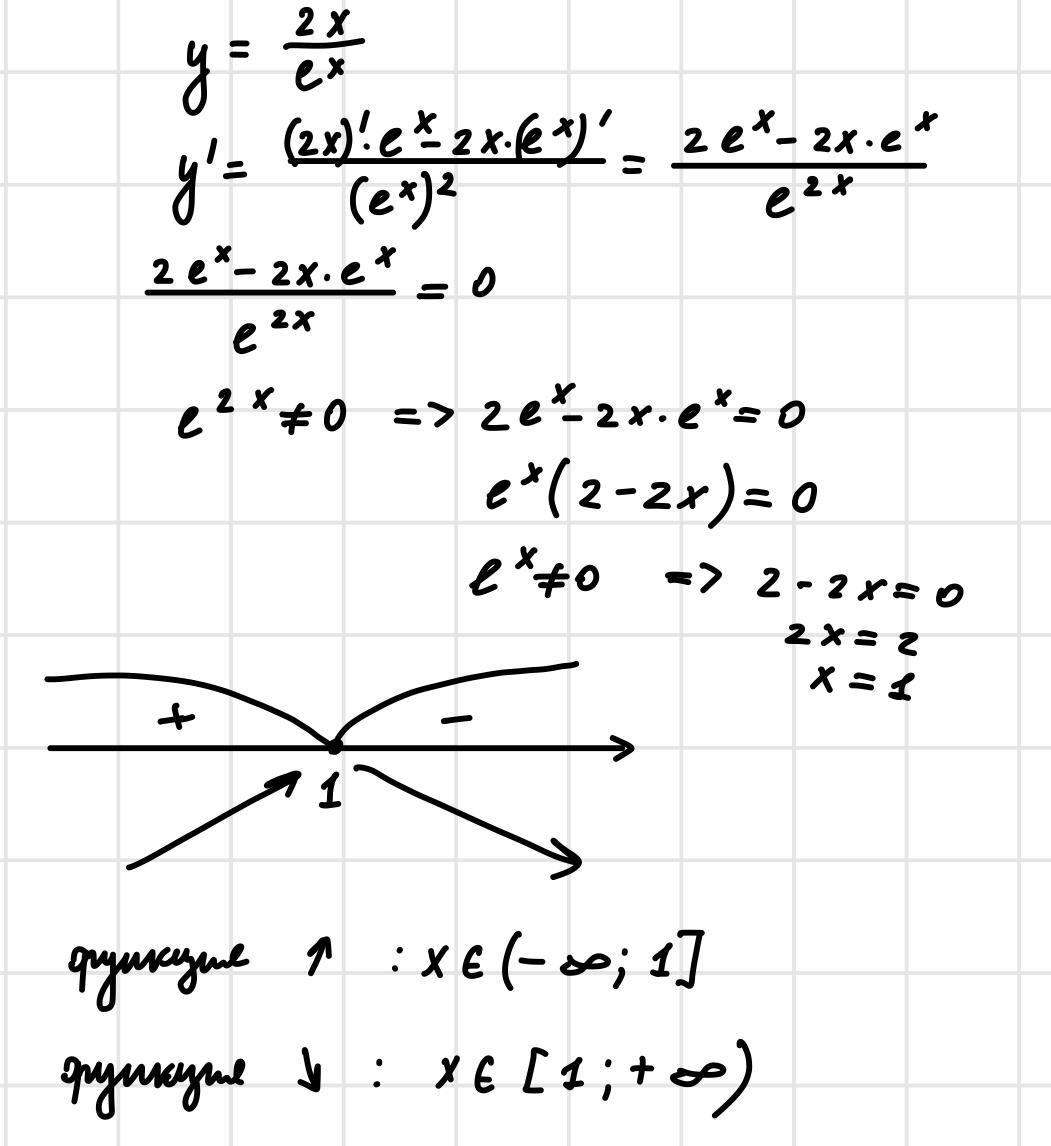 y = 2x / e^x
y' = ((2x)' · e^x - 2x · (e^x)') / (e^x)^2 = (2e^x - 2x · e^x) / e^(2x)
(2e^x - 2x · e^x) / e^(2x) = 0
e^(2x) ≠ 0 => 2e^x - 2x · e^x = 0
e^x (2 - 2x) = 0
e^x ≠ 0 => 2 - 2x = 0
2x = 2
x = 1
+ -
1
функция ↑ : x ∈ (-∞; 1]
функция ↓ : x ∈ [1; +∞)